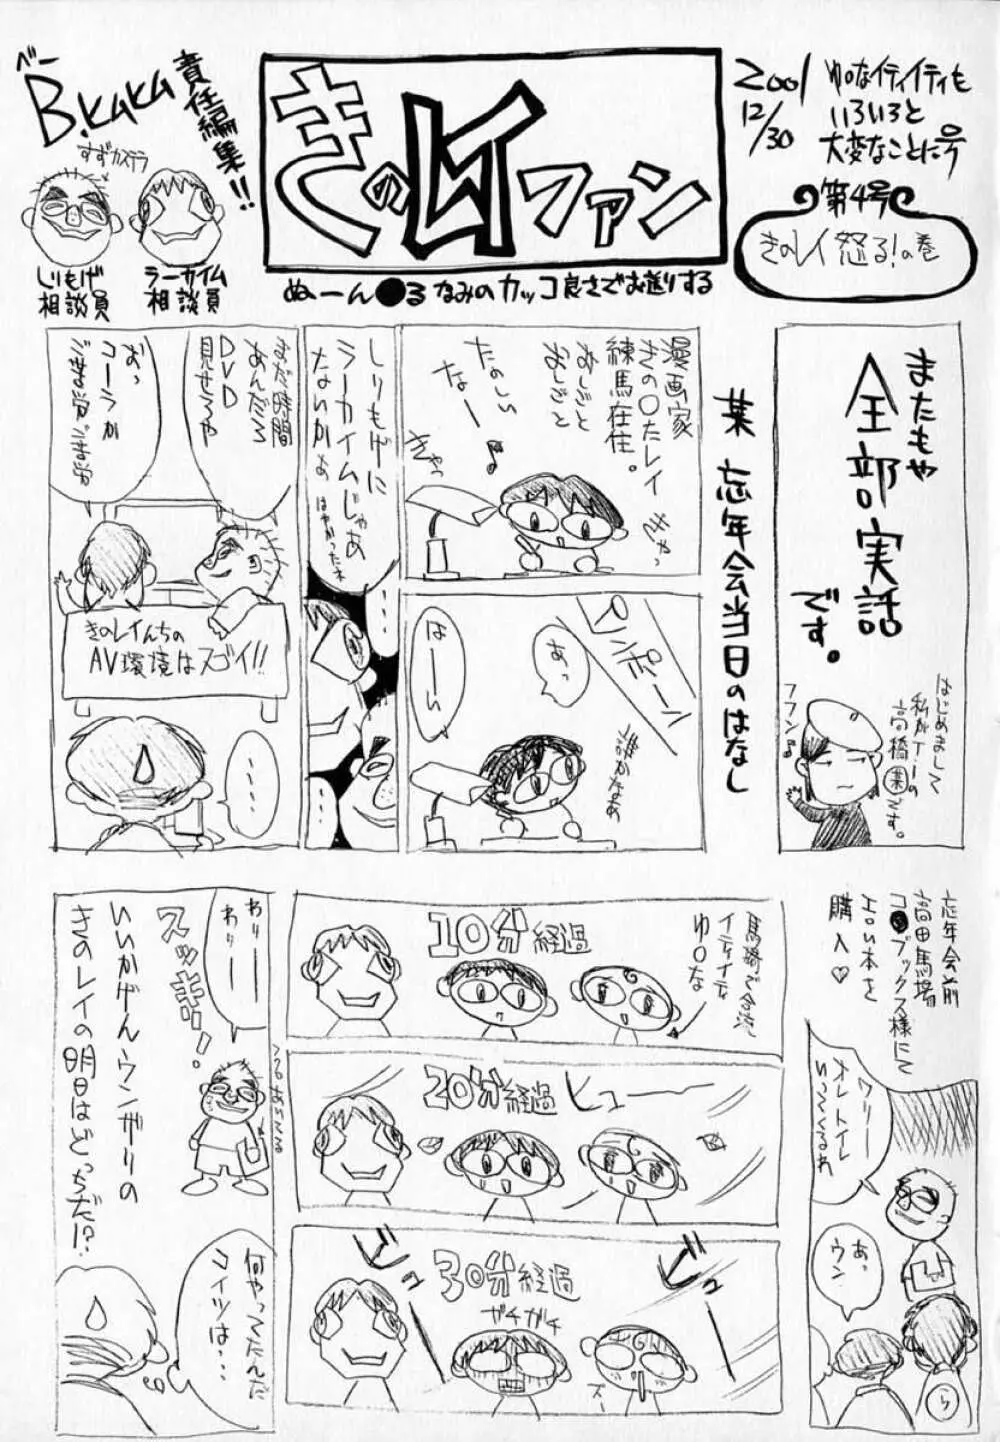 べー
B.kaka
責任編集!!
すずカステラ
しりもげ
相談員
ラーカイム
相談員
きのレイファン
ぬーん●るなみのカッコ良さでお送りする
2001
12/30
ゆ○なイティイティも
いろいろと
大変なことに号
第4号
きのレイ怒る!の巻
またもや
全部実話
です。
はじめまして
私がT-1の
高橋(業)です。
フフン♪
某 忘年会当日のはなし
漫画家
きの○たレイ
練馬在住。
おしごと
おしごと
たのしい
なー♪
きゃっ
きゃっ
ピンポーン
あっ
誰かなぁ
はーい
しりもげに
ラーカイムじゃあ
ないかぁ
はやかったネ
・・・
・・・
まだ時間
あんだろ
DVD
見せろや
おっ
コーラか
ご苦労ご苦労
きのレイんちの
AV環境はスゴイ!!
・・・・
忘年会前
高田馬場
コ●ブックス様にて
エロい本を
購入♡
ワリー
オレトイレ
いってくるわ
あっ
ウン
ら
10分経過
馬場で合流
イティイティな
ゆ○な
20分経過
ヒュー
30分経過
ビュー
ガチガチ
わりー
わりー
スッキリ!
いいかげんウンがりの
きのレイの明日はどっちだ!?
何やってたんだ
コイツは・・・